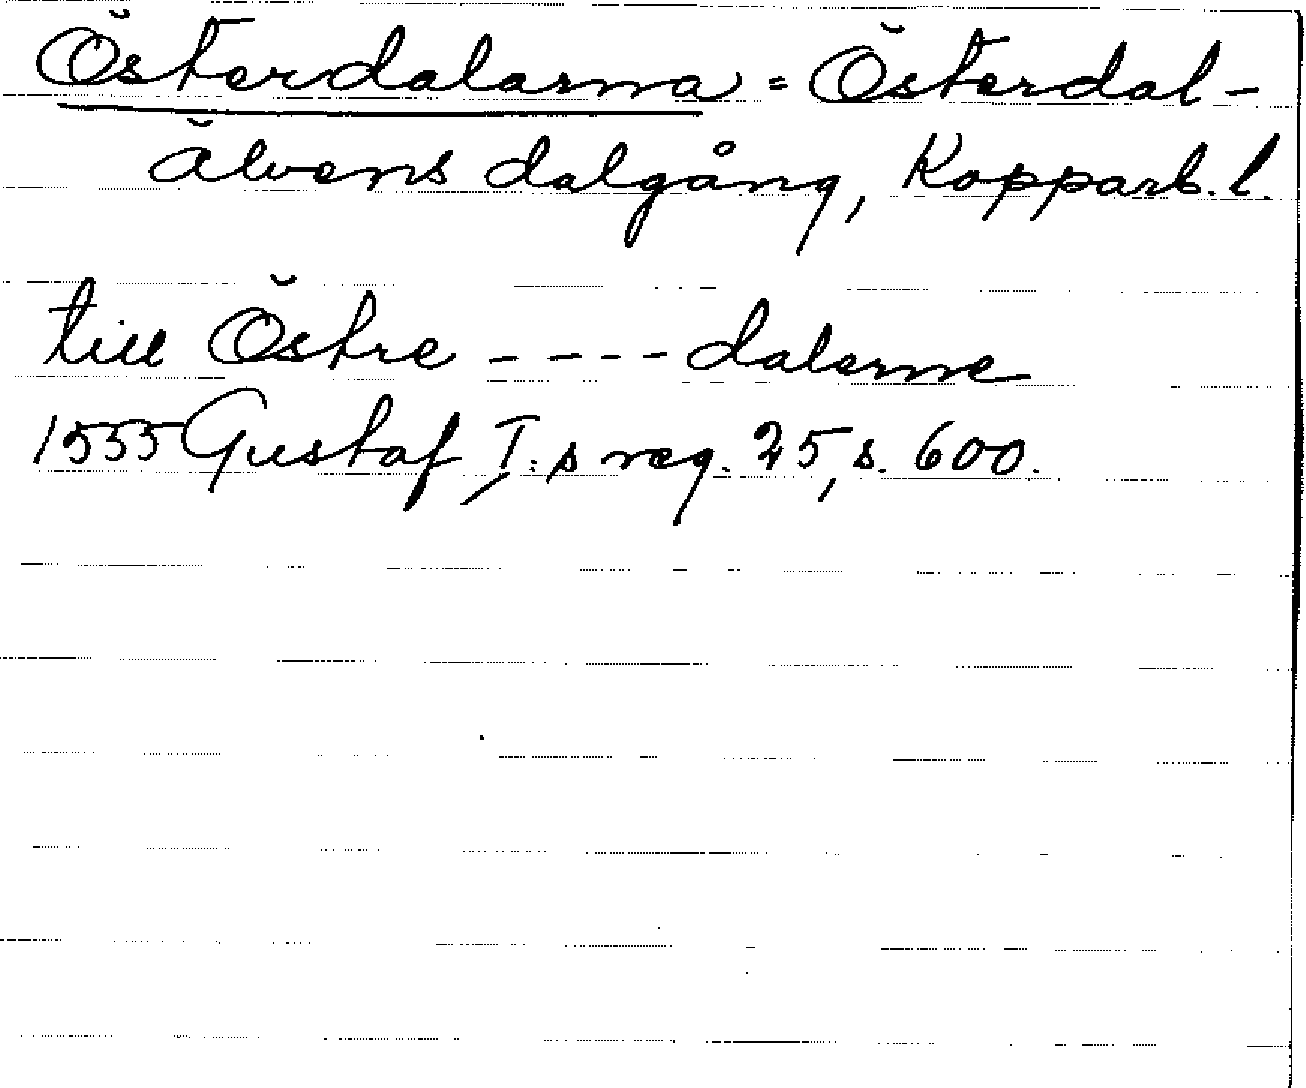 Österdalarna = Österdal-
älvens dalgång, Kopparb. l.
till Östre - - - - dalerne
1555 Gustaf I:s reg. 25, s. 600.